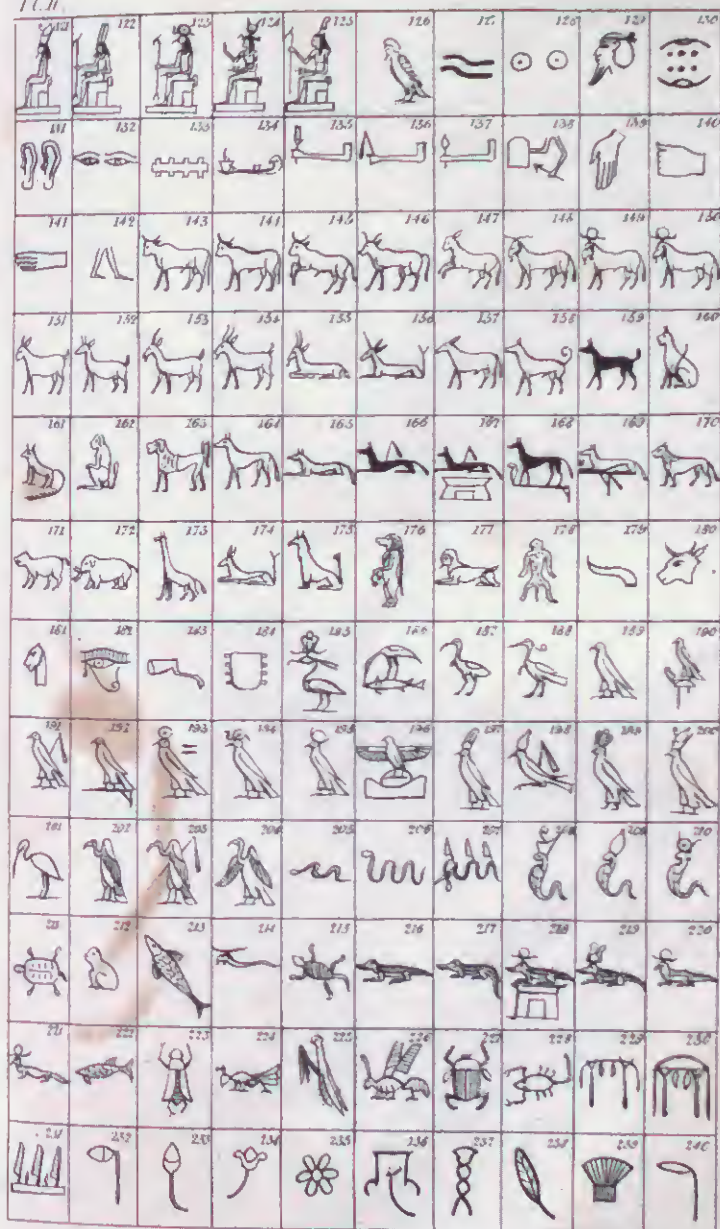 121 122 123 124 125 126 127 128 129 130
131 132 133 134 135 136 137 138 139 140
141 142 143 144 145 146 147 148 149 150
151 152 153 154 155 156 157 158 159 160
161 162 163 164 165 166 167 168 169 170
171 172 173 174 175 176 177 178 179 180
181 182 183 184 185 186 187 188 189 190
191 192 193 194 195 196 197 198 199 200
201 202 203 204 205 206 207 208 209 210
211 212 213 214 215 216 217 218 219 220
221 222 223 224 225 226 227 228 229 230
231 232 233 234 235 236 237 238 239 240